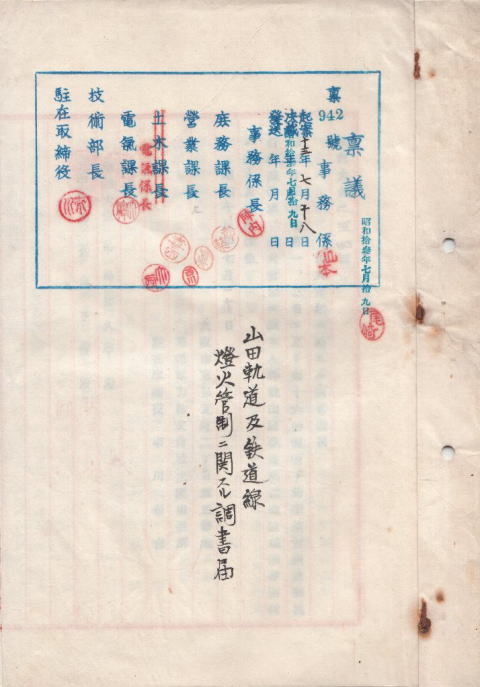 昭和拾叁年七月拾九日
稟議
稟942號事務係
起案十三年七月十八日
決裁昭和拾叁年七月拾九日
發送 年 月 日
事務係長
庶務課長
營業課長
土木課長
電氣係長
電氣課長
技術部長
駐在取締役
山本
尾崎
陣内
山田軌道及鉄道線
燈火管制ニ関スル調書届